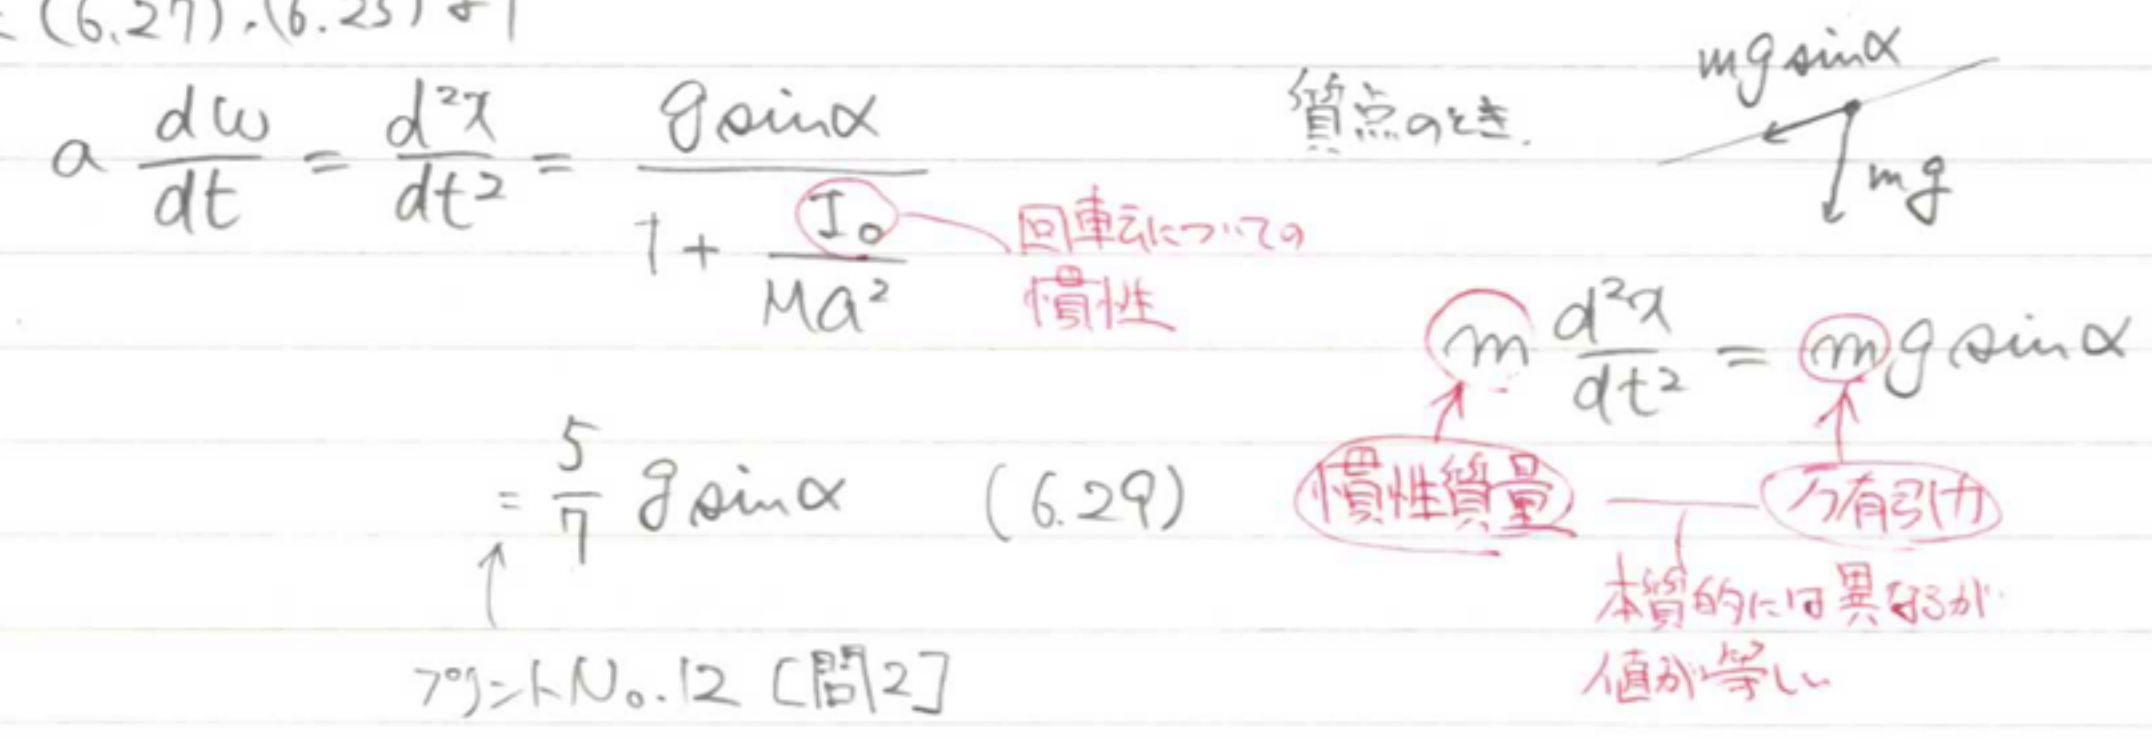 (6.27),(6.25)より
a dω/dt = d²x/dt² = g sinα / (1 + I₀/Ma²)
回転についての
慣性
= 5/7 g sinα (6.29)
↑
プリントNo.12 [問2]
質点のとき.
mg sinα
mg
m d²x/dt² = mg sinα
慣性質量
万有引力
本質的には異なるが
値が等しい